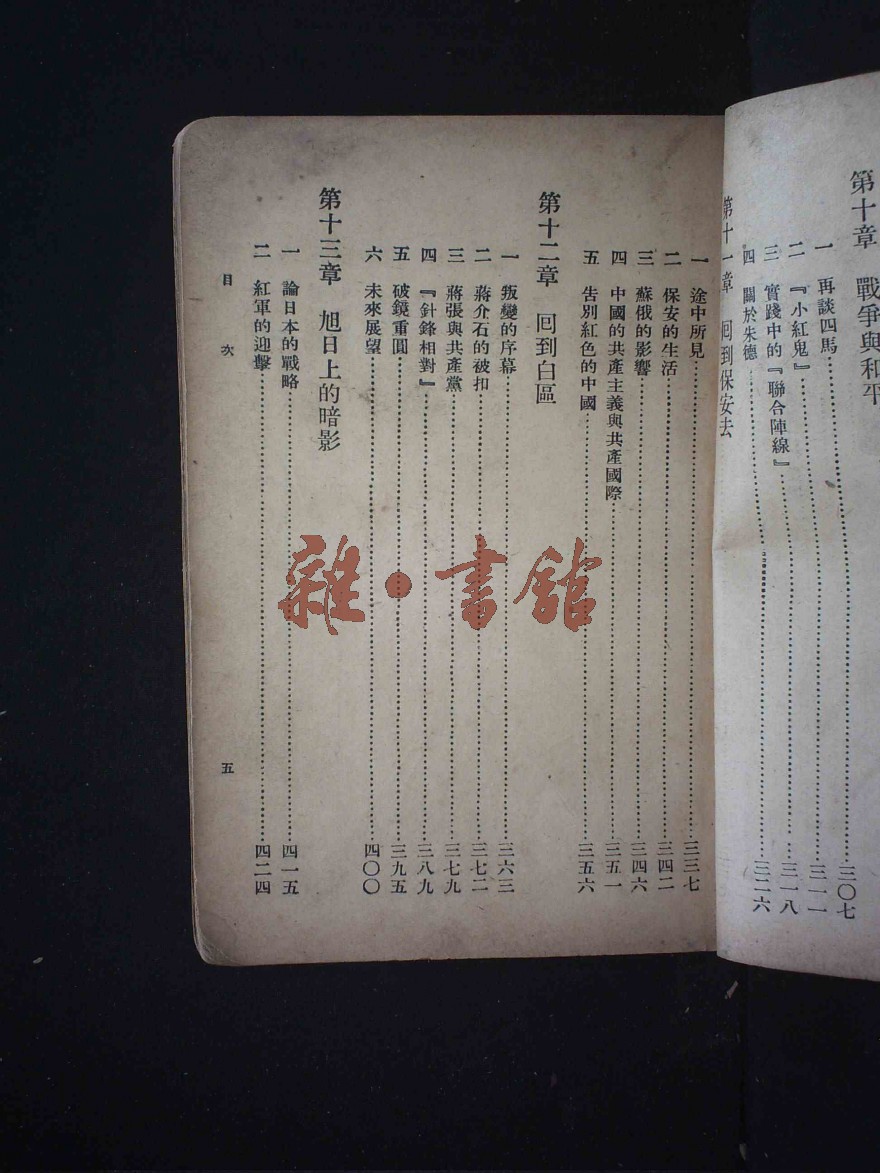 第十章 戰爭與和平
一 再談四馬……三〇七
二 『小紅鬼』……三一一
三 實踐中的『聯合陣線』……三一八
四 關於朱德……三二六
第十一章 囘到保安去
一 途中所見……三三七
二 保安的生活……三四二
三 蘇俄的影響……三四六
四 中國的共產主義與共產國際……三五一
五 告別紅色的中國……三五六
第十二章 囘到白區
一 叛變的序幕……三六三
二 蔣介石的被扣……三七二
三 蔣張與共產黨……三七九
四 『針鋒相對』……三八九
五 破鏡重圓……三九五
六 未來展望……四〇〇
第十三章 旭日上的暗影
一 論日本的戰略……四一五
二 紅軍的迎擊……四二四
目次 五
雜·書館